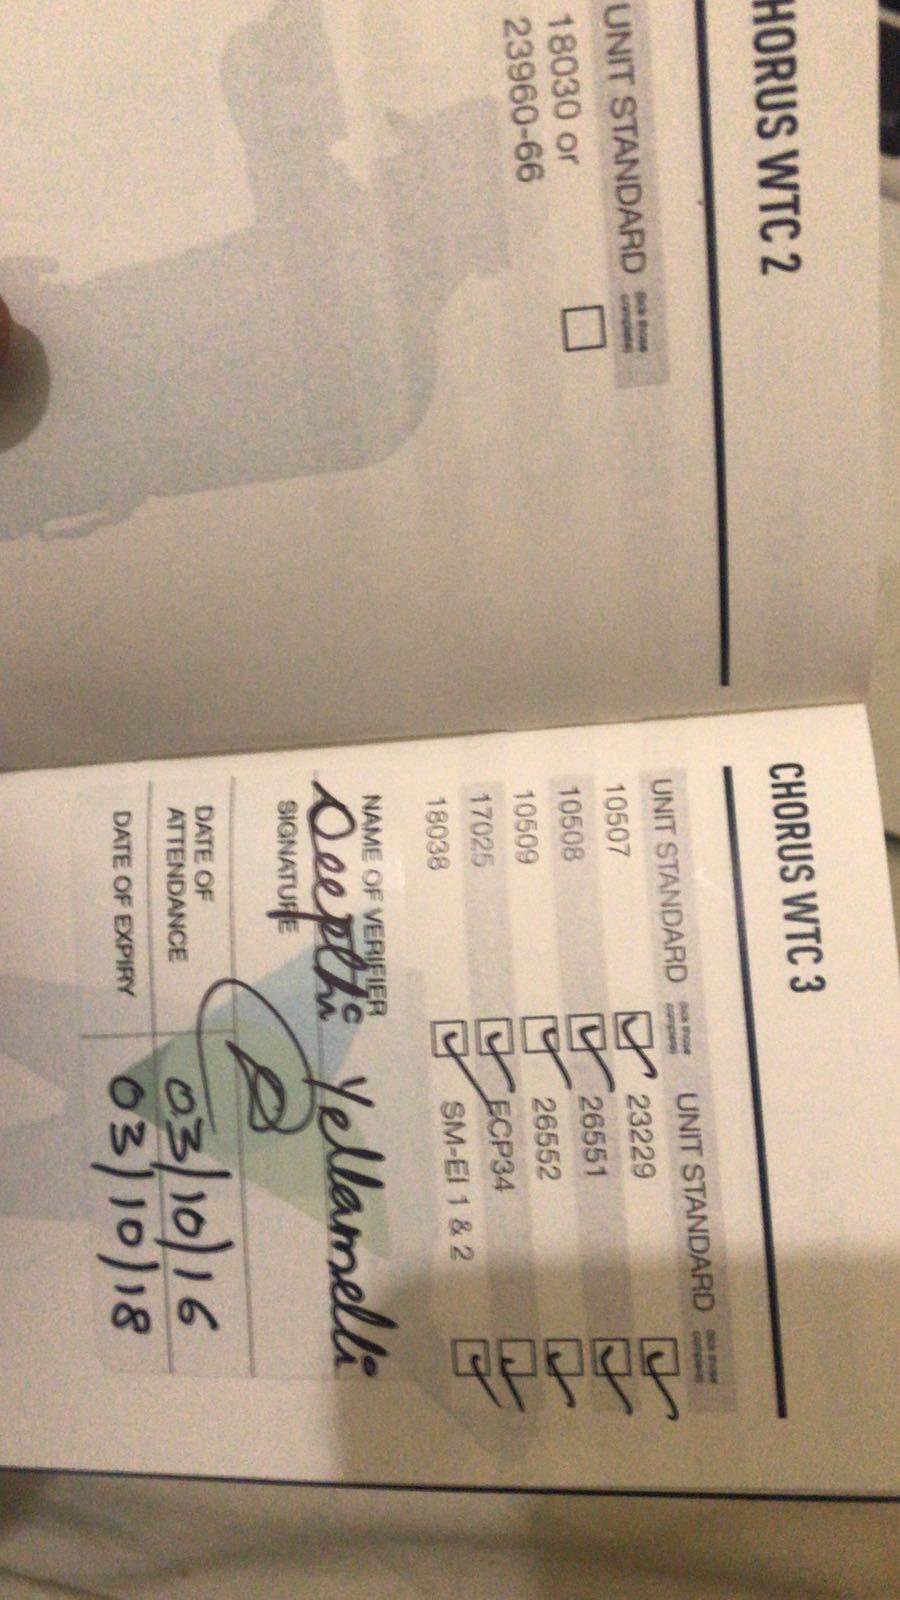 CHORUS WTC 2
UNIT STANDARD tick those completed
18030 or
23960-66
CHORUS WTC 3
UNIT STANDARD tick those completed UNIT STANDARD tick those completed
10507 23229
10508 26551
10509 26552
17025 ECP34
18038 SM-EI 1 & 2
NAME OF VERIFIER
Deepthi Yellamelli
SIGNATURE
DATE OF
ATTENDANCE 03/10/16
DATE OF EXPIRY 03/10/18